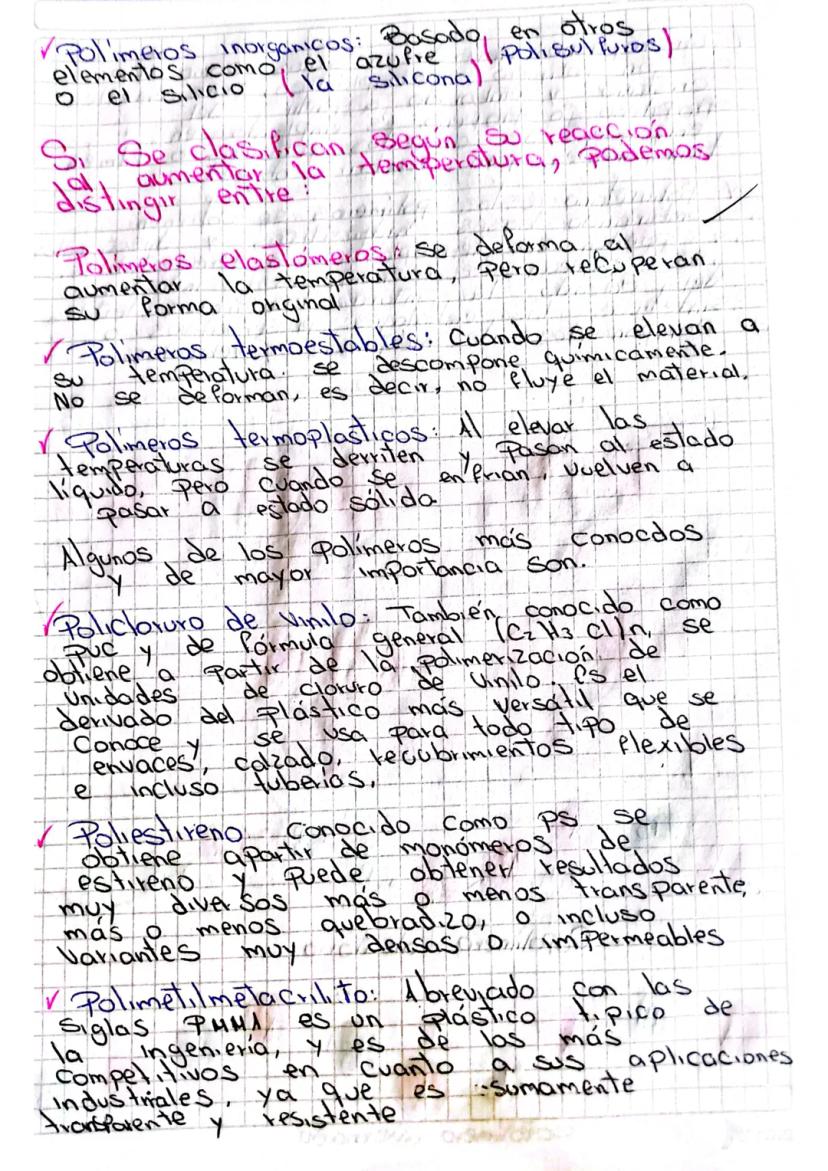 ✓ Polímeros inorganicos: Basado en otros
elementos como el azufre (Polisulfuros)
o el silicio (la silicona)
Si Se clasifican según su reacción
al aumentar la temperatura, podemos
distingir entre:
Polimeros elastómeros: se deforma al
aumentar la temperatura, pero recuperan
su forma original
✓ Polímeros termoestables: Cuando se elevan a
su temperatura se descompone químicamente.
No se deforman, es decir, no fluye el material.
✓ Polimeros termoplasticos: Al elevar las
temperaturas se derriten y pasan al estado
líquido, pero cuando se enfrian, vuelven a
pasar a estado sólida
Algunos de los polímeros más conocdos
y de mayor importancia son.
✓ Policloruro de vinilo: También conocido como
PVC y de fórmula general (C2 H3 Cl)n, se
obtiene a partir de la polimerización de
unidades de cloruro de vinilo. Es el
derivado del plástico más versátil que se
conoce y se usa para todo tipo de
envaces, calzado, recubrimientos flexibles
e incluso tuberías.
✓ Poliestireno conocido como ps se
obtiene apartir de monómeros de
estireno y puede obtener resultados
muy diversos más o menos transparente,
más o menos quebradizo, o incluso
variantes muy densas o impermeables
✓ Polimetilmetacrilito: Abreviado con las
siglas PMMA es un plástico tipico de
la ingeniería, y es de los más
competitivos en cuanto a sus aplicaciones
industriales, ya que es sumamente
transparente y resistente